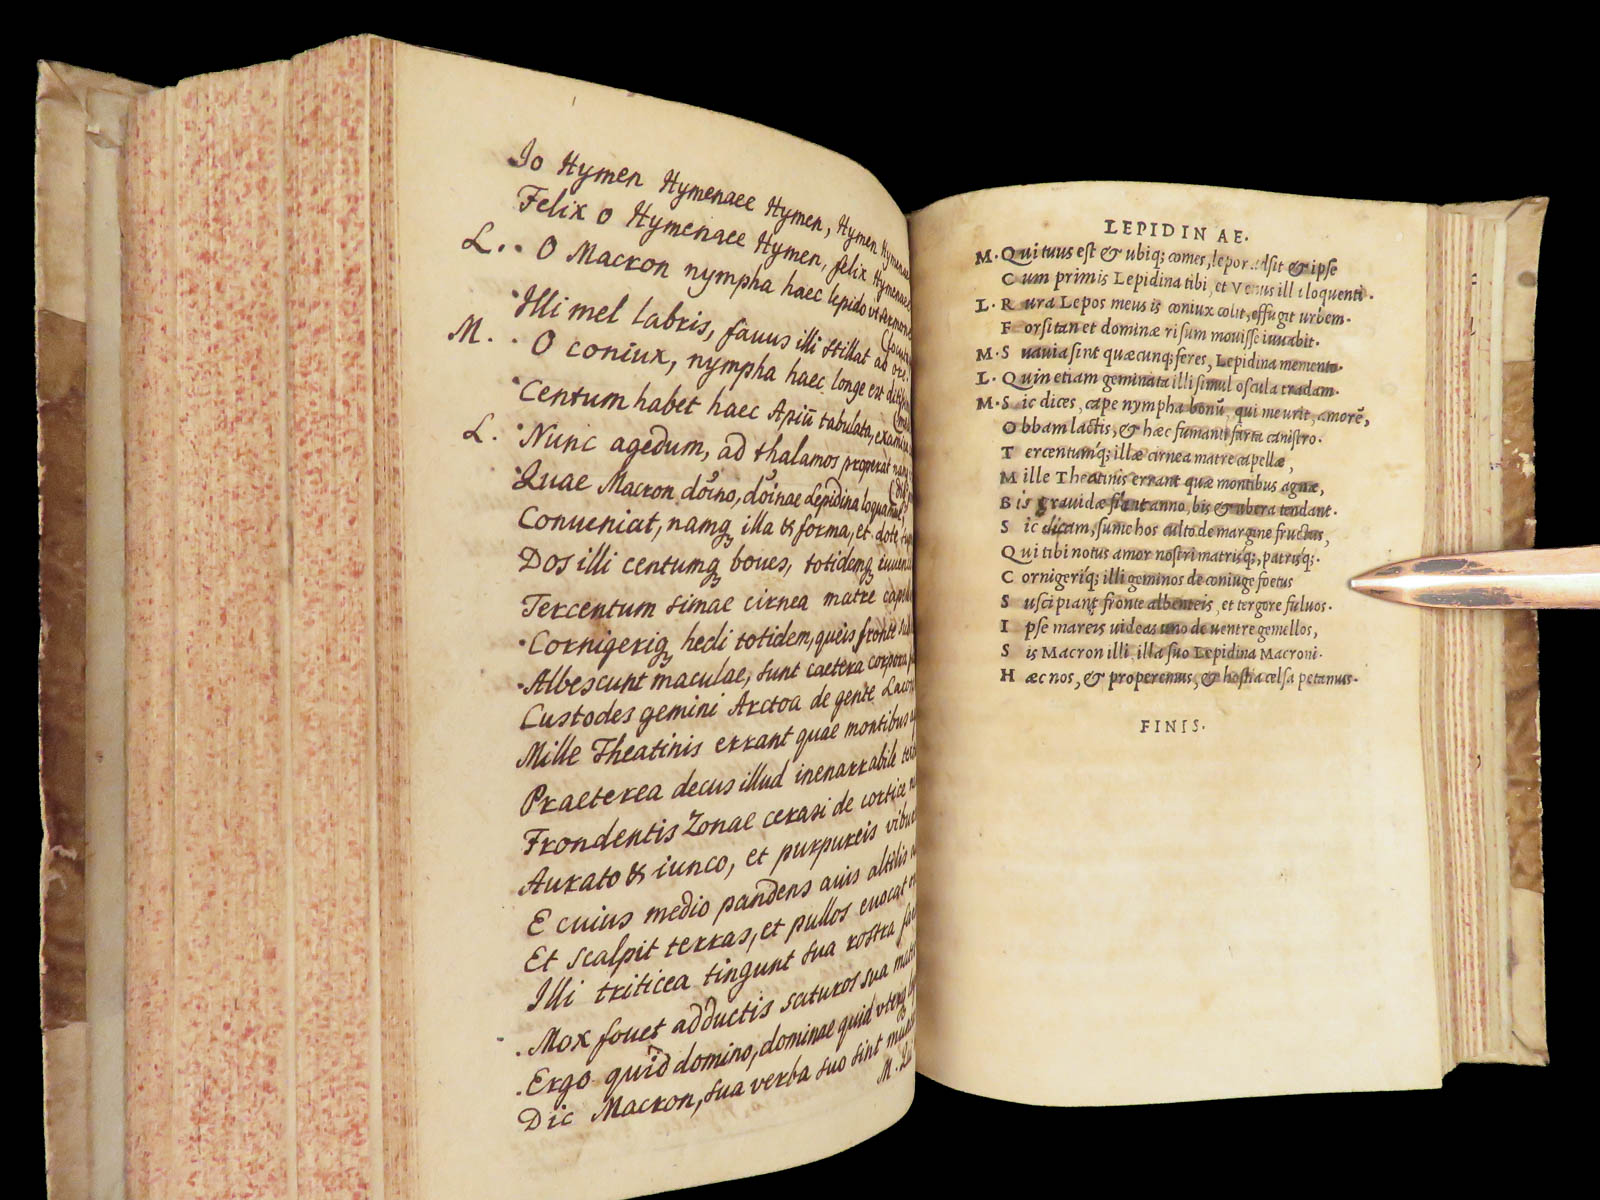 Io Hymen Hymenaee Hymen, Hymen Hymenaee
Felix o Hymenaee Hymen, felix Hymenaee
L. . O Macron nympha haec lepido ut sermone
(locuta
Illi mel labris, fauus illi stillat ab ore.
M. . O coniux, nympha haec longe est
Centum habet haec Apiū tabulata, examina
L. Nunc agedum, ad thalamos properat
Quae Macron dōino, dōinae Lepidina loquamur,
Conueniat, namq; illa & forma, et dote
Dos illi centumq; boues, totidemq; iuuenci
Tercentum simae cirnea matre capellae
Cornigeriq; hedi totidem, queis fronte sub
Albescunt maculae, sunt caetera corpora
Custodes gemini Arctoa de gente
Mille Theatinis errant quae montibus
Praeterea decus illud inenarrabile
Frondentis Zonae cerasi de cortice
Aurato & iunco, et purpureis
E cuius medio pandens auis altilis
Et scalpit terras, et pullos euocat
Illi triticea tingunt sua rostra
Mox fouet adductis saturos sua
Ergo quid domino, dominae quid uterq;
Dic Macron, sua verba suo sint
M.
LEPIDINAE.
M. Qui tuus est & ubiq; comes, lepor adsit & ipse
Cum primis Lepidina tibi, et Venus illi loquenti.
L. Rura Lepos meus is coniux colit, effugit urbem.
Forsitan et dominæ risum mouisse iuuabit.
M. Suauia sint quæcunq; feres, Lepidina memento.
L. Quin etiam geminata illi simul oscula tradam.
M. Sic dices, cape nympha bonū, qui me urit, amorē,
Obbam lactis, & hæc fumanti farta canistro.
Tercentumq́; illæ cirnea matre capellæ,
Mille Theatinis errant quæ montibus agnæ,
Bis grauidæ fiant anno, bis & ubera tendant.
Sic dicam, sume hos culto de margine fructus,
Qui tibi notus amor nostri matrisq́;, patrisq́;.
Cornigeriq́; illi geminos de coniuge foetus
Suscipiant fronte albenteis, et tergore fuluos.
Ipse mareis uideas uno de uentre gemellos,
Sis Macron illi, illa suo Lepidina Macroni.
Hæc nos, & properemus, & hostia celsa petamus.
FINIS.